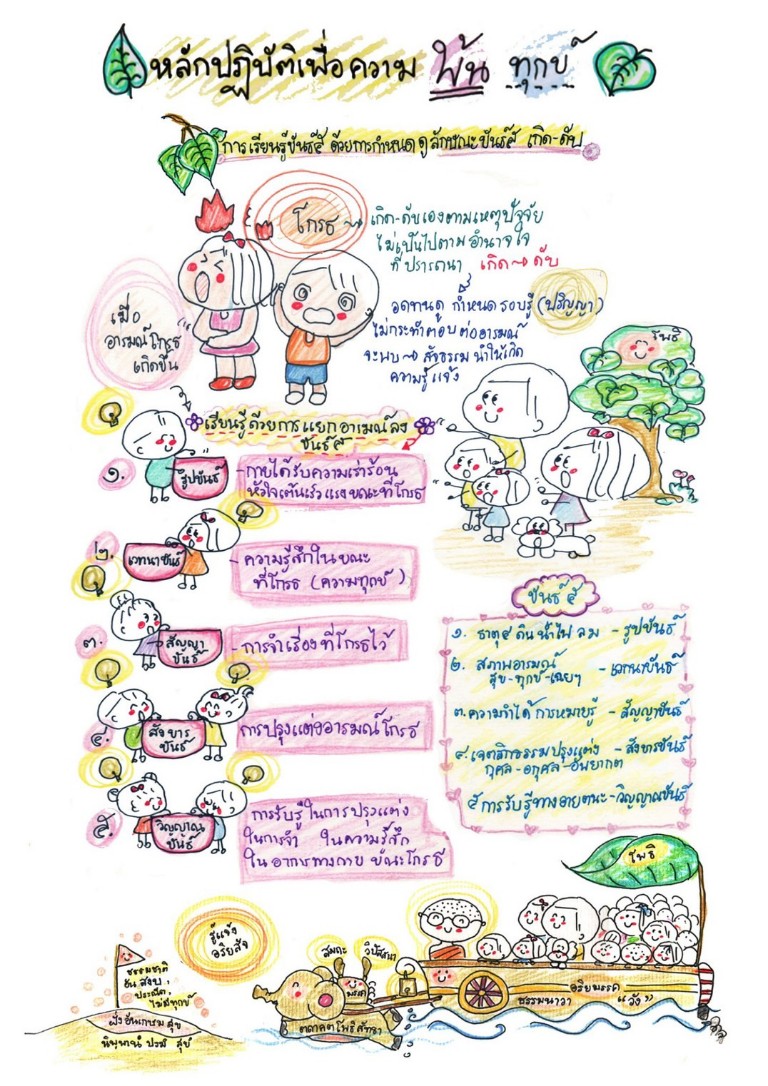 หลักปฏิบัติเพื่อความ พ้น ทุกข์
การเรียนรู้ขันธ์๕ ด้วยการกำหนด ดูลักษณะขันธ์๕ เกิด-ดับ
โกรธ
เกิด-ดับเองตามเหตุปัจจัย
ไม่เป็นไปตามอำนาจใจ
ที่ปรารถนา เกิด → ดับ
เมื่อ
อารมณ์โกรธ
เกิดขึ้น
อดทนดู กำหนดรอบรู้ (ปริญญา)
ไม่กระทำตอบต่ออารมณ์
จะพบ → สัจธรรม นำให้เกิด
ความรู้แจ้ง
โพธิ
เรียนรู้ด้วยการแยกอารมณ์ลง
ขันธ์๕
๑.
รูปขันธ์
-กายได้รับความเร่าร้อน
หัวใจเต้นเร็ว แรง ขณะที่โกรธ
๒.
เวทนาขันธ์
-ความรู้สึกในขณะ
ที่โกรธ (ความทุกข์)
๓.
สัญญา
ขันธ์
-การจำเรื่องที่โกรธไว้
๔.
สังขาร
ขันธ์
การปรุงแต่งอารมณ์โกรธ
๕.
วิญญาณ
ขันธ์
การรับรู้ในการปรุงแต่ง
ในการจำ ในความรู้สึก
ในอาการทางกาย ขณะโกรธ
ขันธ์ ๕
๑. ธาตุ๔ ดิน น้ำ ไฟ ลม - รูปขันธ์
๒. สภาพอารมณ์
สุข-ทุกข์-เฉยๆ - เวทนาขันธ์
๓. ความจำได้ การหมายรู้ - สัญญาขันธ์
๔. เจตสิกธรรมปรุงแต่ง - สังขารขันธ์
กุศล-อกุศล-อัพยากต
๕ การรับรู้ทางอายตนะ -วิญญาณขันธ์
โพธิ
รู้แจ้ง
อริยสัจ
สมถะ วิปัสสนา
มรรค
ธรรมชาติ
อัน สงบ,
ประณีต,
ไม่มีทุกข์
ฝั่งอันเกษม สุข
นิพพานํ ปรมํ สุขํ
ตถาคตโพธิสัทธา
อริยมรรค
ธรรมนาวา "วัง"